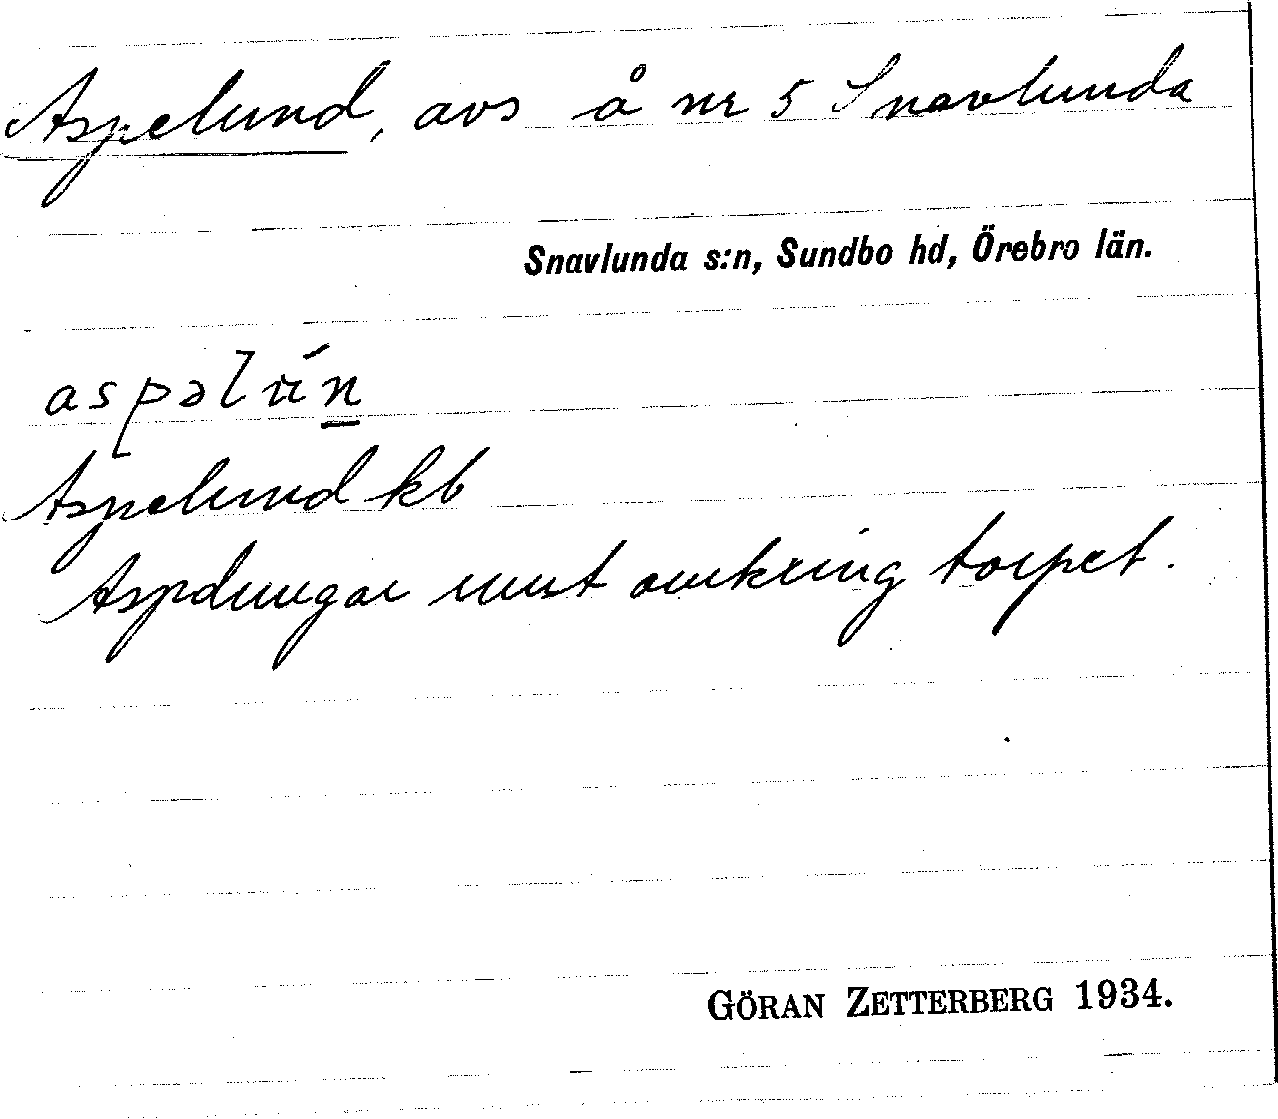 Aspelund, avs å nr 5 Snavlunda
Snavlunda s:n, Sundbo hd, Örebro län.
aspəlún
Aspelund kb
Aspdungar runt omkring torpet.
GÖRAN ZETTERBERG 1934.